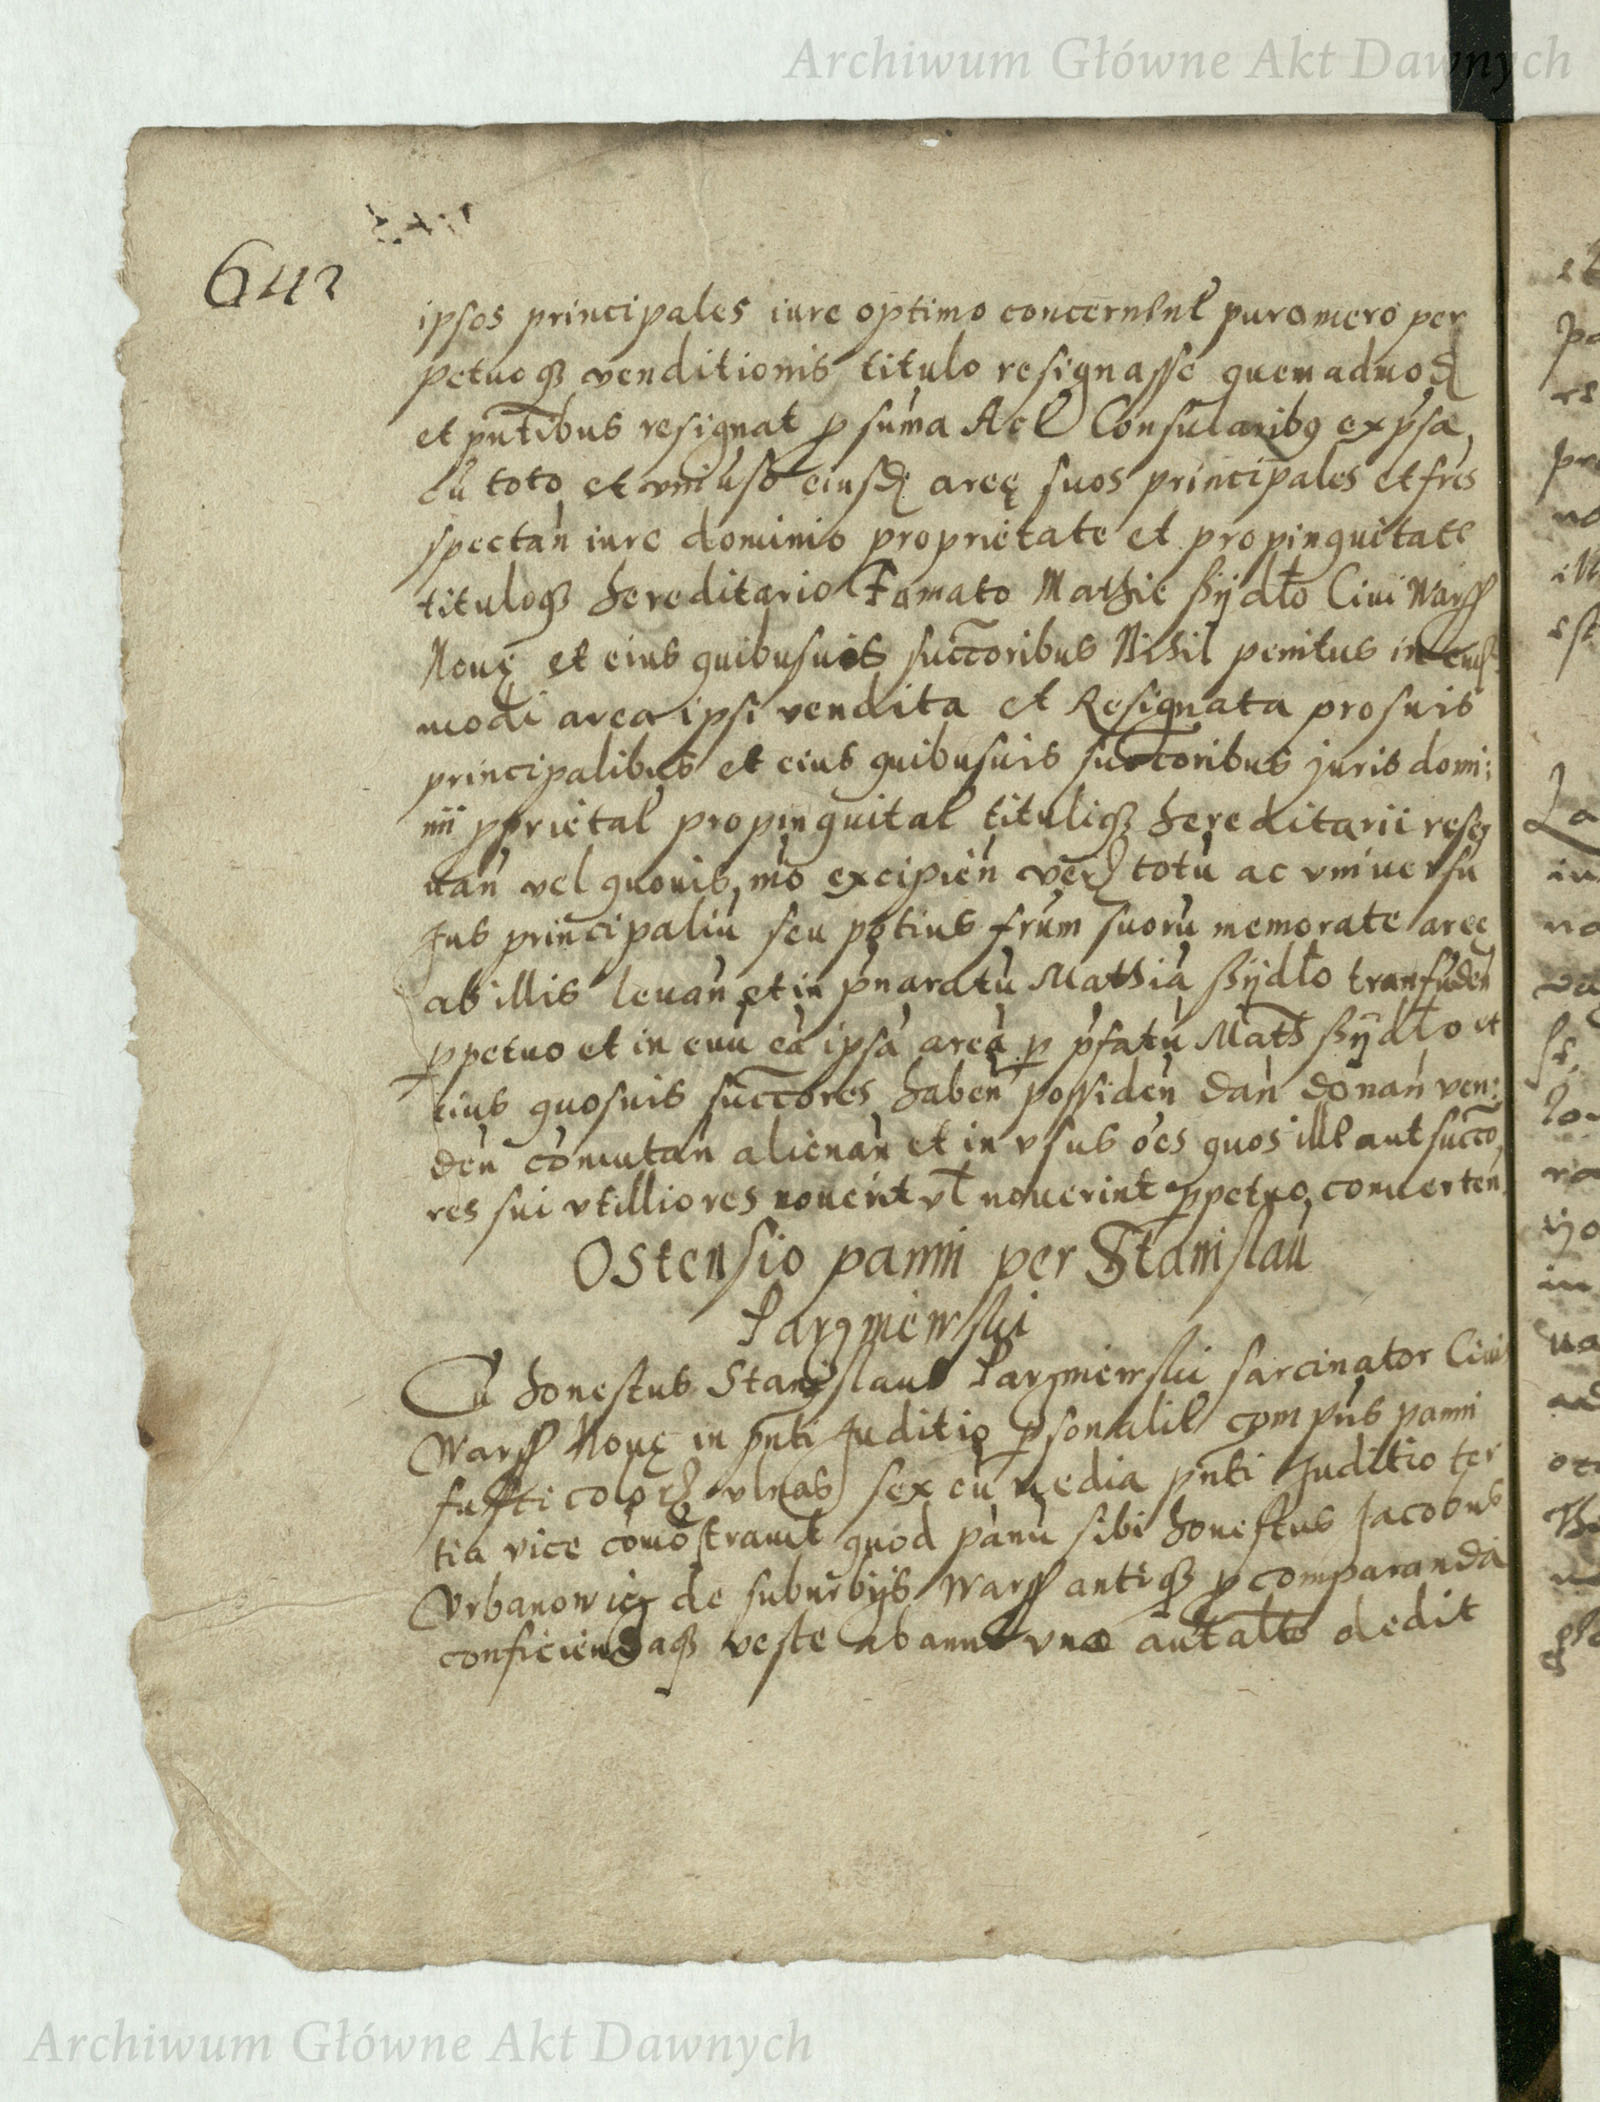 Archiwum Główne Akt Dawnych
642
ipsos principales iure optimo concernent puro mero per
petuoqȝ venditionis titulo resignasse quemadmod
et pntibus resignat p suma Act Consularibq expsa
Cu toto et vniuso eiusd areę suos principales et frēs
spectan iure dominio proprietate et propinquitate
tituloqȝ hereditario Famato Mathie ßijdło Ciui Warss
Nouę et eius quibusuis succoribus Nihil penitus in eius
modi area ipsi vendita et Resignata pro suis
principalibus et eius quibusuis succoribus juris domi:
nii pprietat propinquitat tituliqȝ hereditarii reseq
uan vel quouis mo excipien verȝ totu ac vniuersu
Jus principaliu seu potius frum suoru memorate areę
ab illis leuan et in pnaratu Mathia ßijdło tranfuden
ppetuo et in euu ea ipsa area p pfatu Math ßijdło et
eius quosuis succores haben possiden dan donan ven:
den comutan alienan et in vsus oes quos ille aut succo
res sui vtilliores nouerit vl nouerint ppetuo conuerten
Ostensio panni per Stanislau
Parzniewski
Cu honestus Stanislaus Parzniewski sarcinator Ciuis
Warss Nouę in pnti Juditio psonalit compus panni
fussti colorȝ vlnas sex cu media pnti Juditio ter
tia vice comostrauit quod panu sibi honestus Jacobus
Vrbanowicz de suburbijs Warss antiqȝ p comparanda
conficiendaqȝ veste ab anno vno aut alto dedit
Archiwum Główne Akt Dawnych